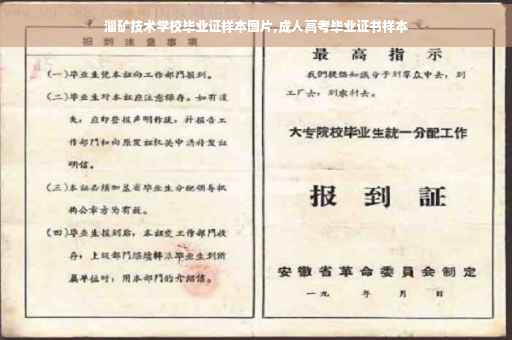 淄矿技术学校毕业证样本图片,成人高考毕业证书样本
报到注意事项
(一)毕业生凭本证向工作部門报到。
(二)毕业生对本证应注意保存。如有遗
失,应即登报声明作废,并报告工
作部門和向原发证机关申请补发证
明信。
(三)本证必须加盖省毕业生分配领导机
构公章方为有效。
(四)毕业生报到后,本证交工作部門收
存;上级部門
毕业生到所
属单位时,用本部門的介绍信。
最高指示
我們提倡知識分子到羣众中去,到
工厂去,到农村去。
大专院校毕业生統一分配工作
报到証
安徽省革命委員会制定
一九 年 月 日